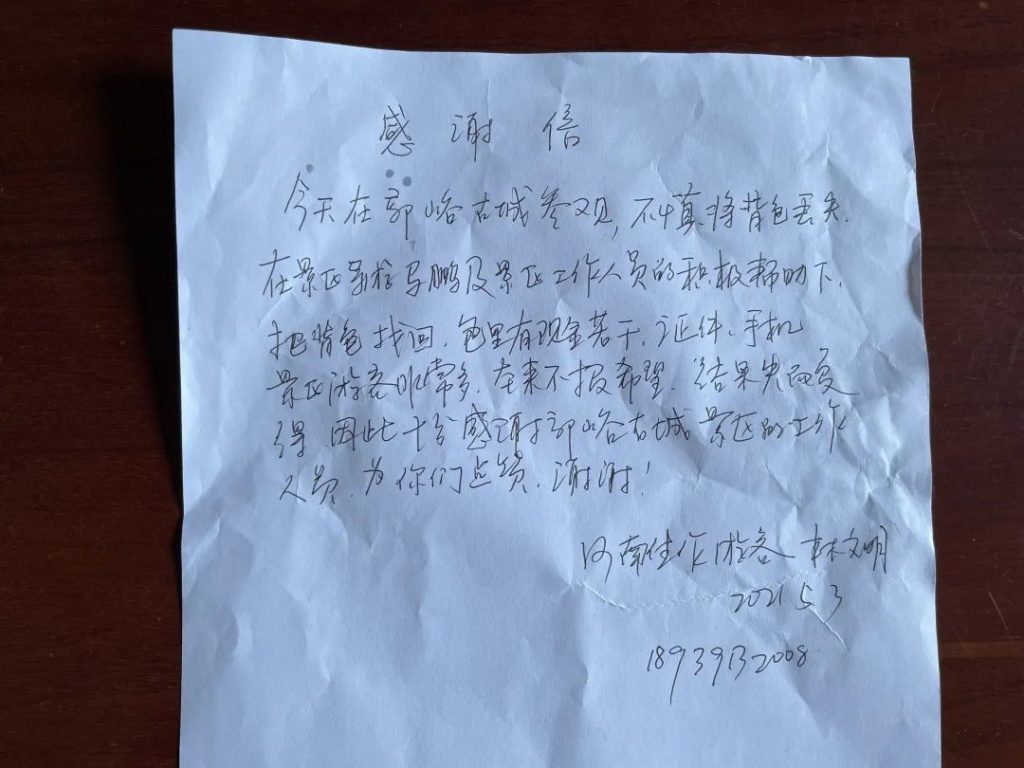 感谢信
今天在郭峪古城参观,不慎将背包丢失.
在景区马鹏及景区工作人员的积极帮助下.
把背包找回.包里有现金若干、证件、手机
景区游客非常多.本来不报希望.结果失而复
得 因此十分感谢郭峪古城景区的工作
人员.为你们点赞.谢谢!
河南焦作游客 林文明
2021 5 3
18939132008